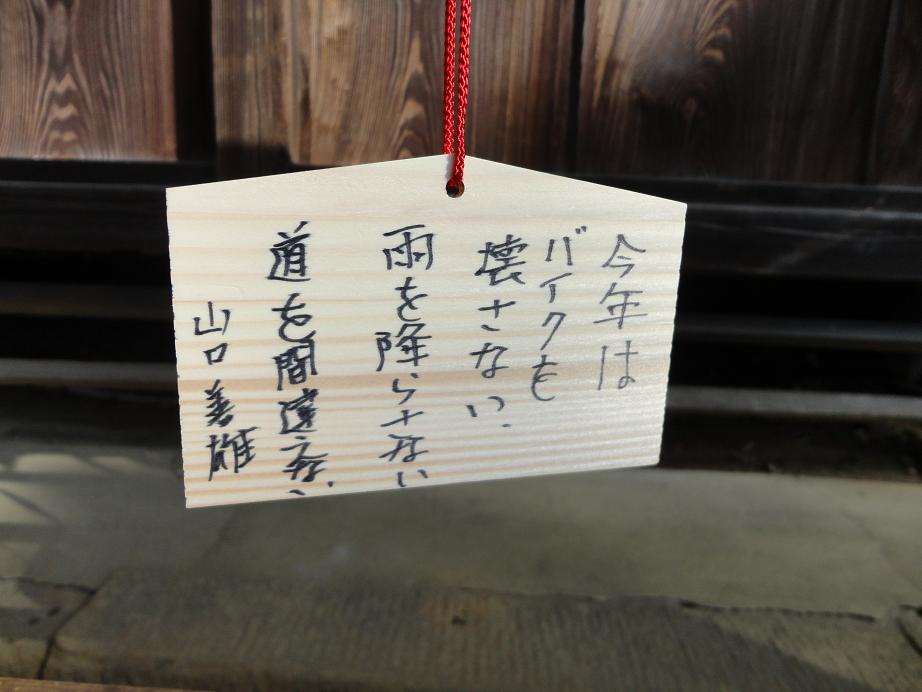 今年は
バイクを
壊さない.
雨を降らさない
道を間違えない
山口善雄